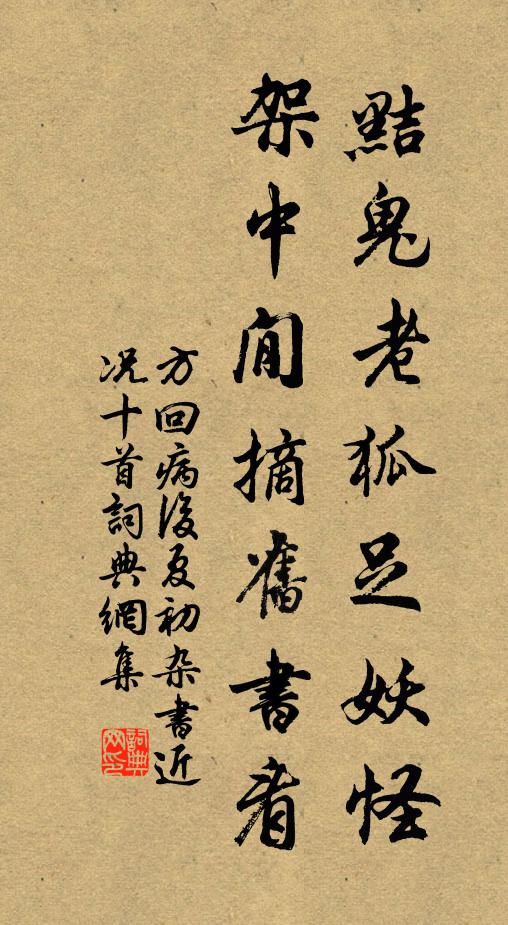 黠鬼老狐足妖怪
架中閒摘舊書看
方回病後夏初杂書近
况十首詞典網集
詞典网印